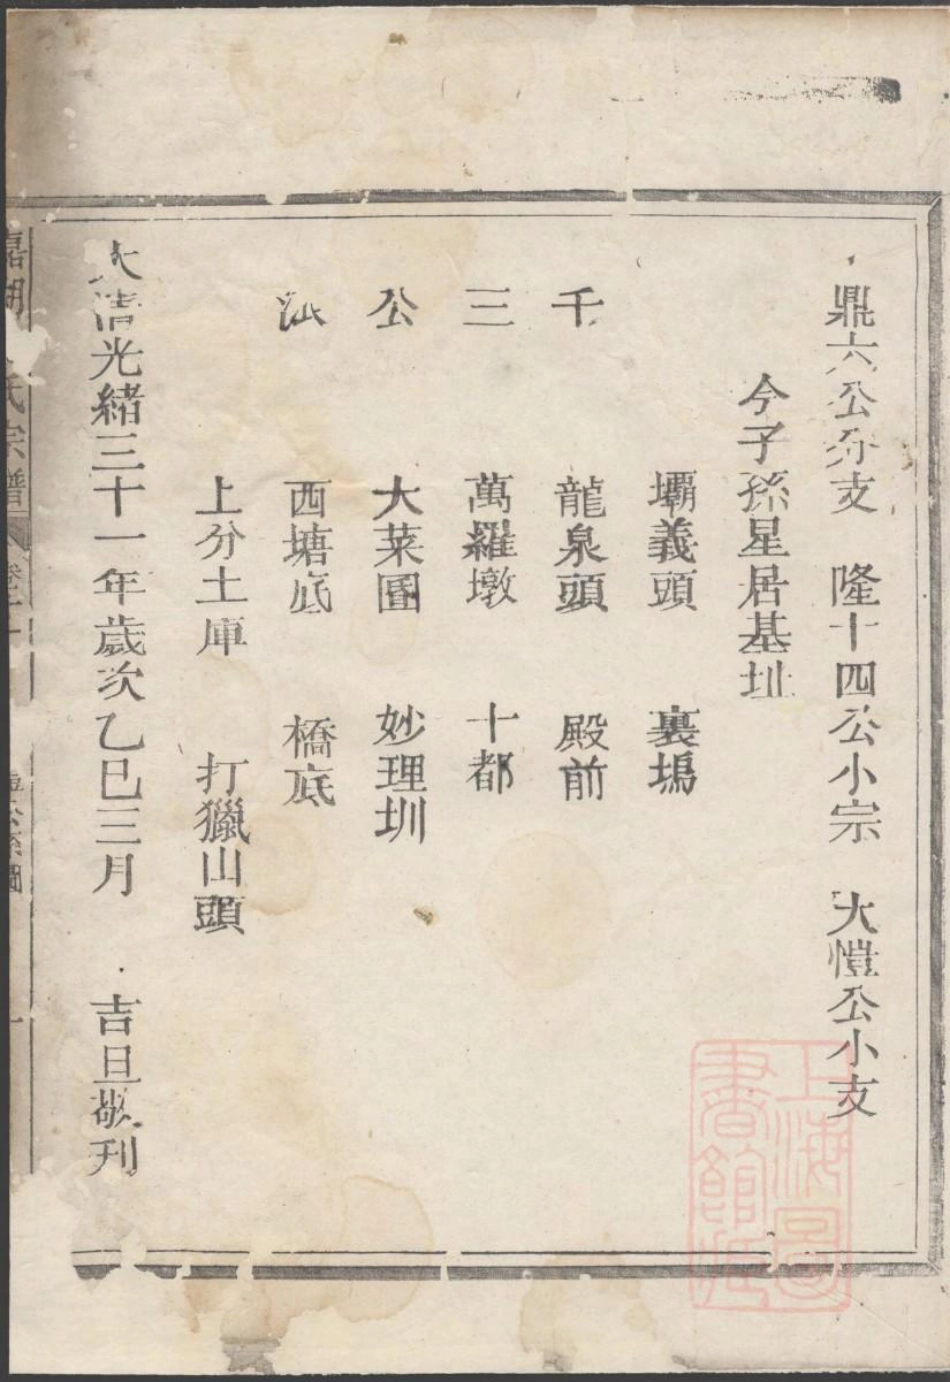 鼎六公分支　隆十四公小宗　大愷公小支
今子孫星居基址
壩義頭　裏塢
千　龍泉頭　殿前
三　萬羅墩　十都
公　大菜園　妙理圳
派　西塘底　橋底
上分土庫　打獵山頭
大清光緒三十一年歲次乙巳三月　吉旦敬刊
氏宗譜
上海圖書館藏